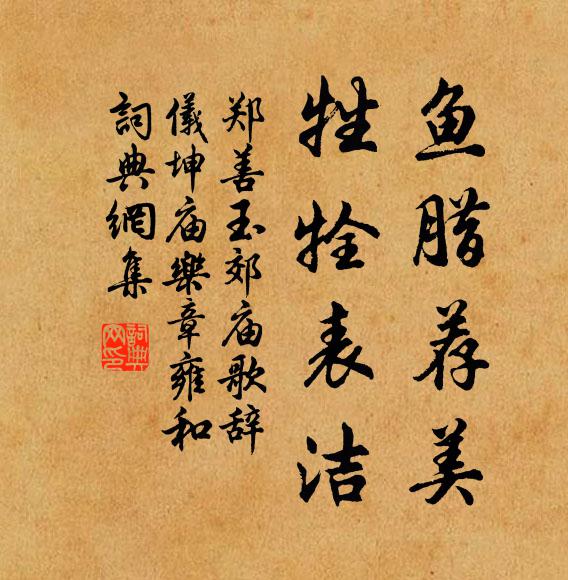 鱼腊荐美
牲牷表洁
郑善玉郊庙歌辞
儀坤庙樂章雍和
詞典網集
詞典网印